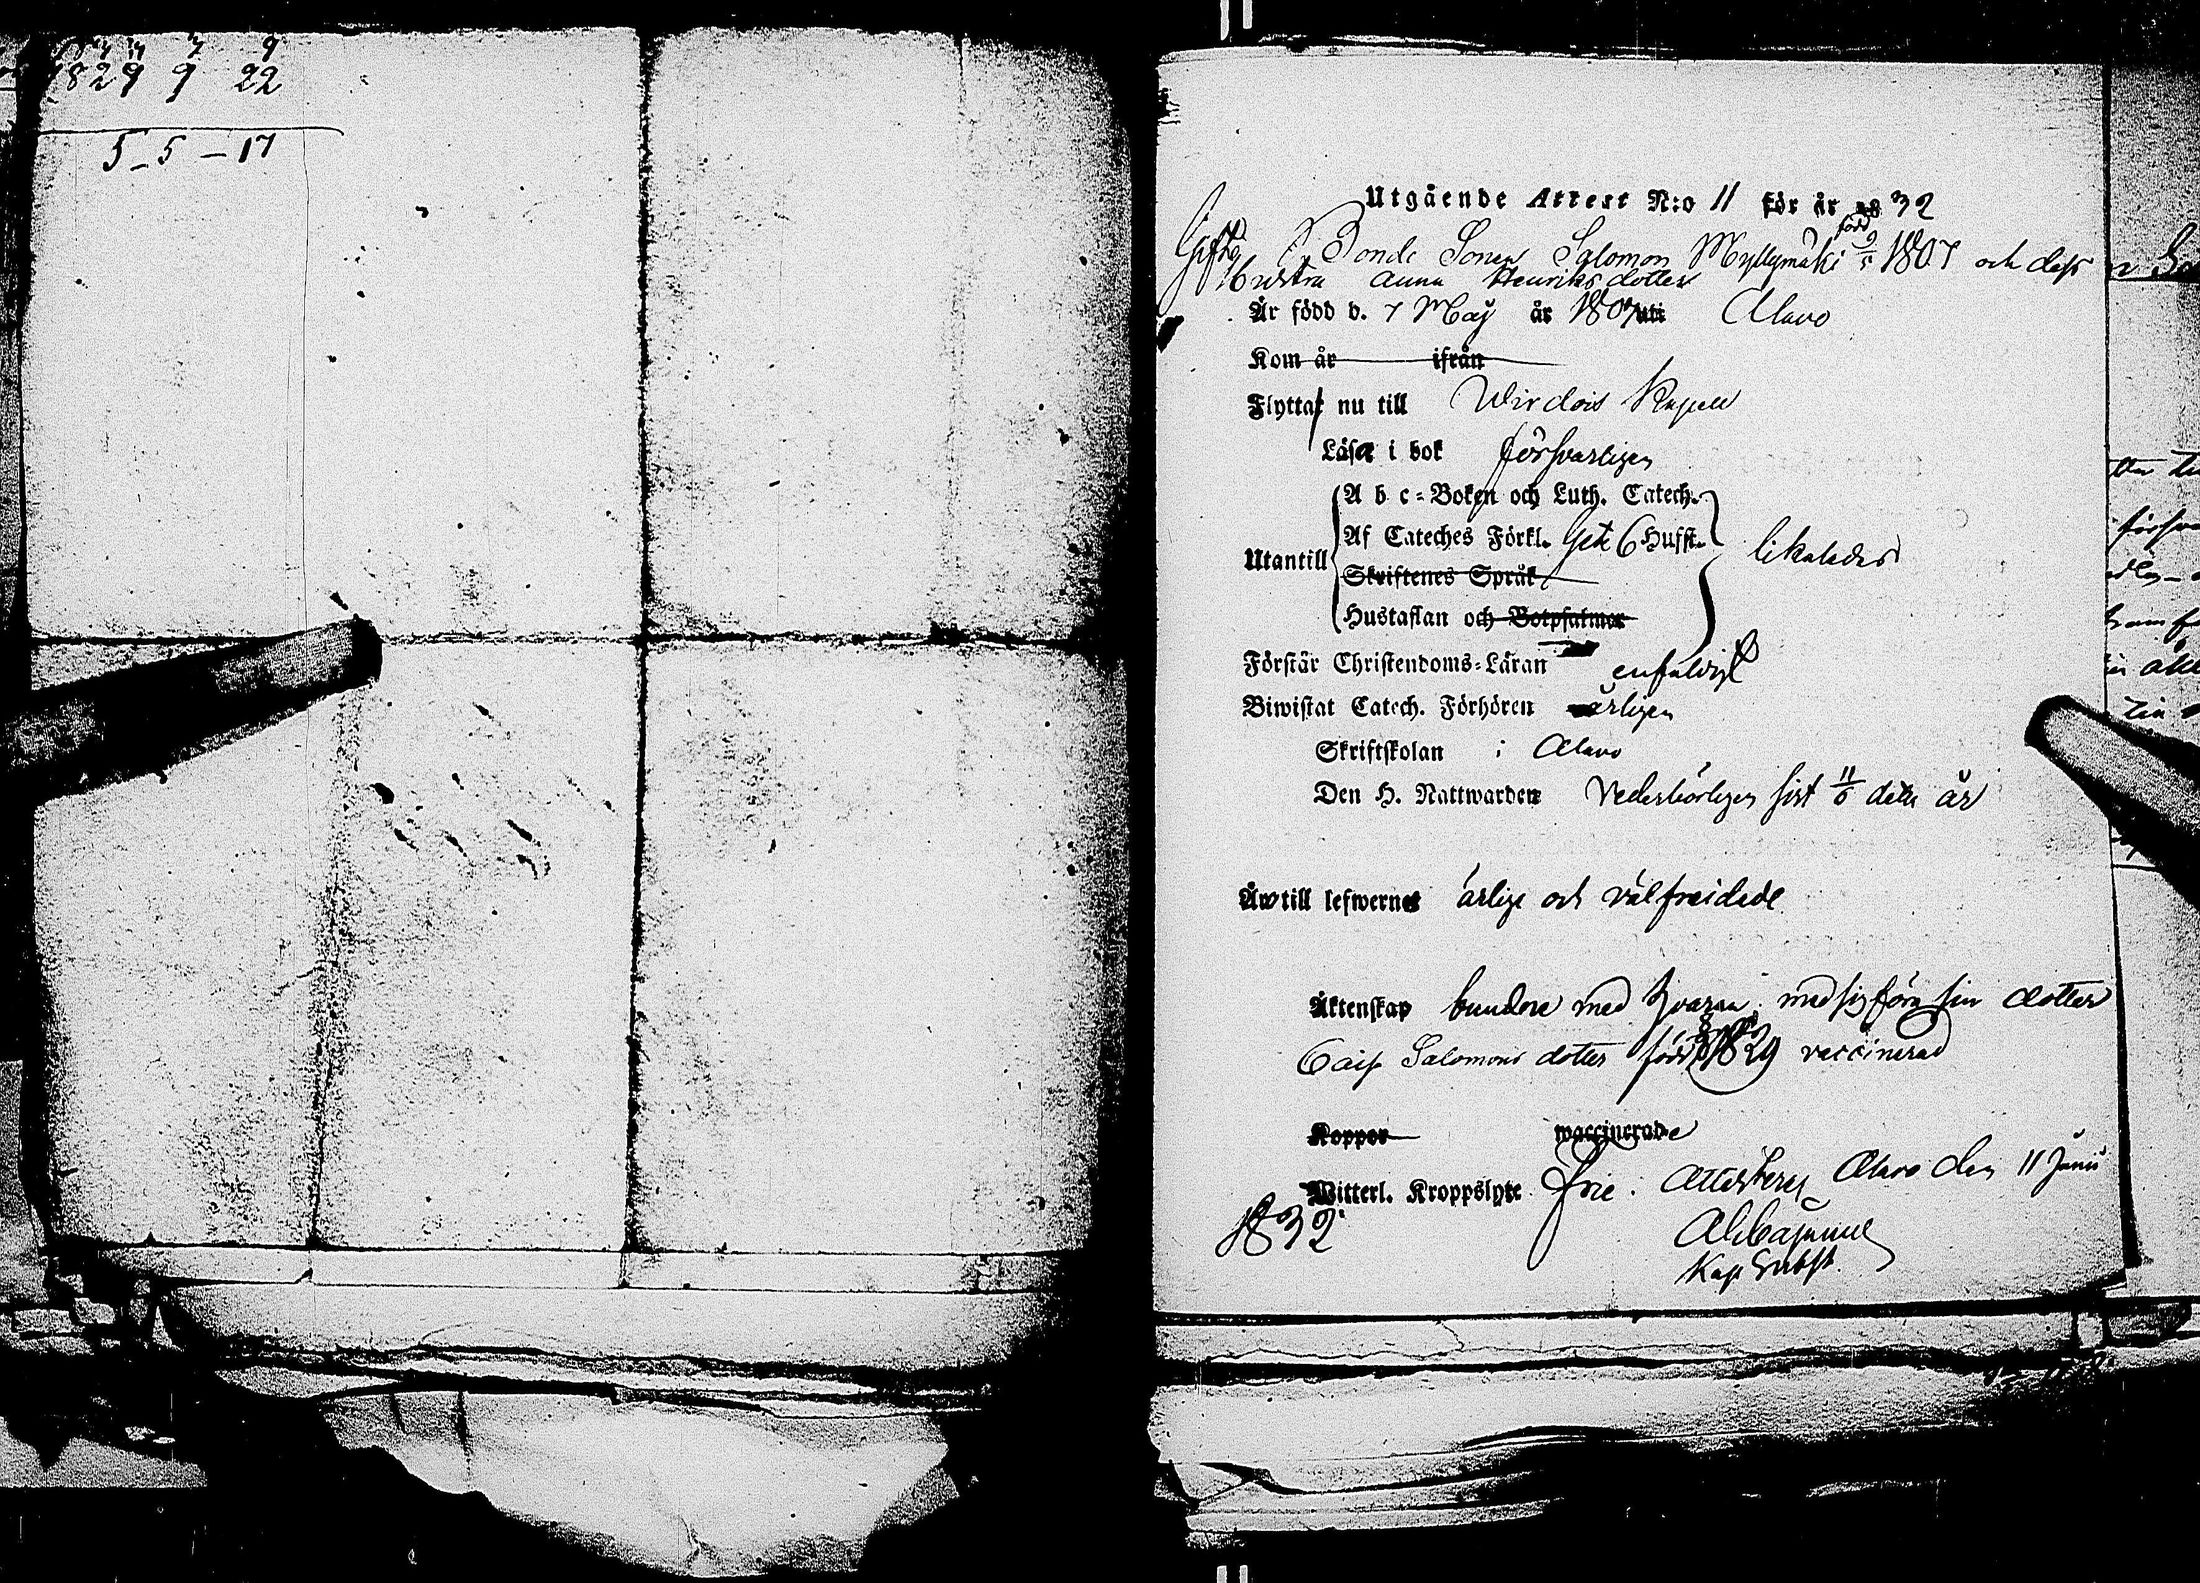 1829 9 22
5 - 5 - 17
Utgående Attest N:o 11 för år 32
född
Gifte Bonde Sonen Salomon Myllymäki 9/5 1807 och dess
Hustru Anna Henriksdotter
Är född d. 7 Maij år 1807 uti Alavo
Kom år ifrån
Flytta nu till Wirdois Kapell
Läsa i bok försvarligen
A b c-Boken och Luth. Catech.
Af Cateches Förkl. Hufst.
Utantill likaledes
Skriftenes Språk
Hustaflan och Botpsalmer
Förstår Christendoms-Läran enfaldigt
Biwistat Catech. Förhören årligen
Skriftskolan i Alavo
Den H. Nattwarden vederbörligen sist 11/6 detta år
Är till lefwernet ärlige och välfreidade
Äktenskap bundne med hvaran medsig föra sin dotter
Cajs Salomons dotter född 1829 vaccinerad
Koppor waccinerade
Witterl. Kroppslyte frie. Attesteras Alavo den 11 Junii
1832
Kap Subst.